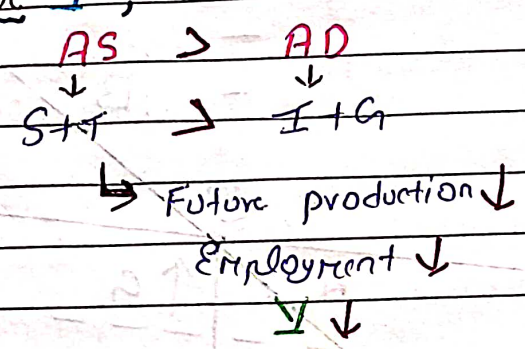 AS > AD
↓ ↓
S+T > I+G
↳ Future production ↓
Employment ↓
Y ↓